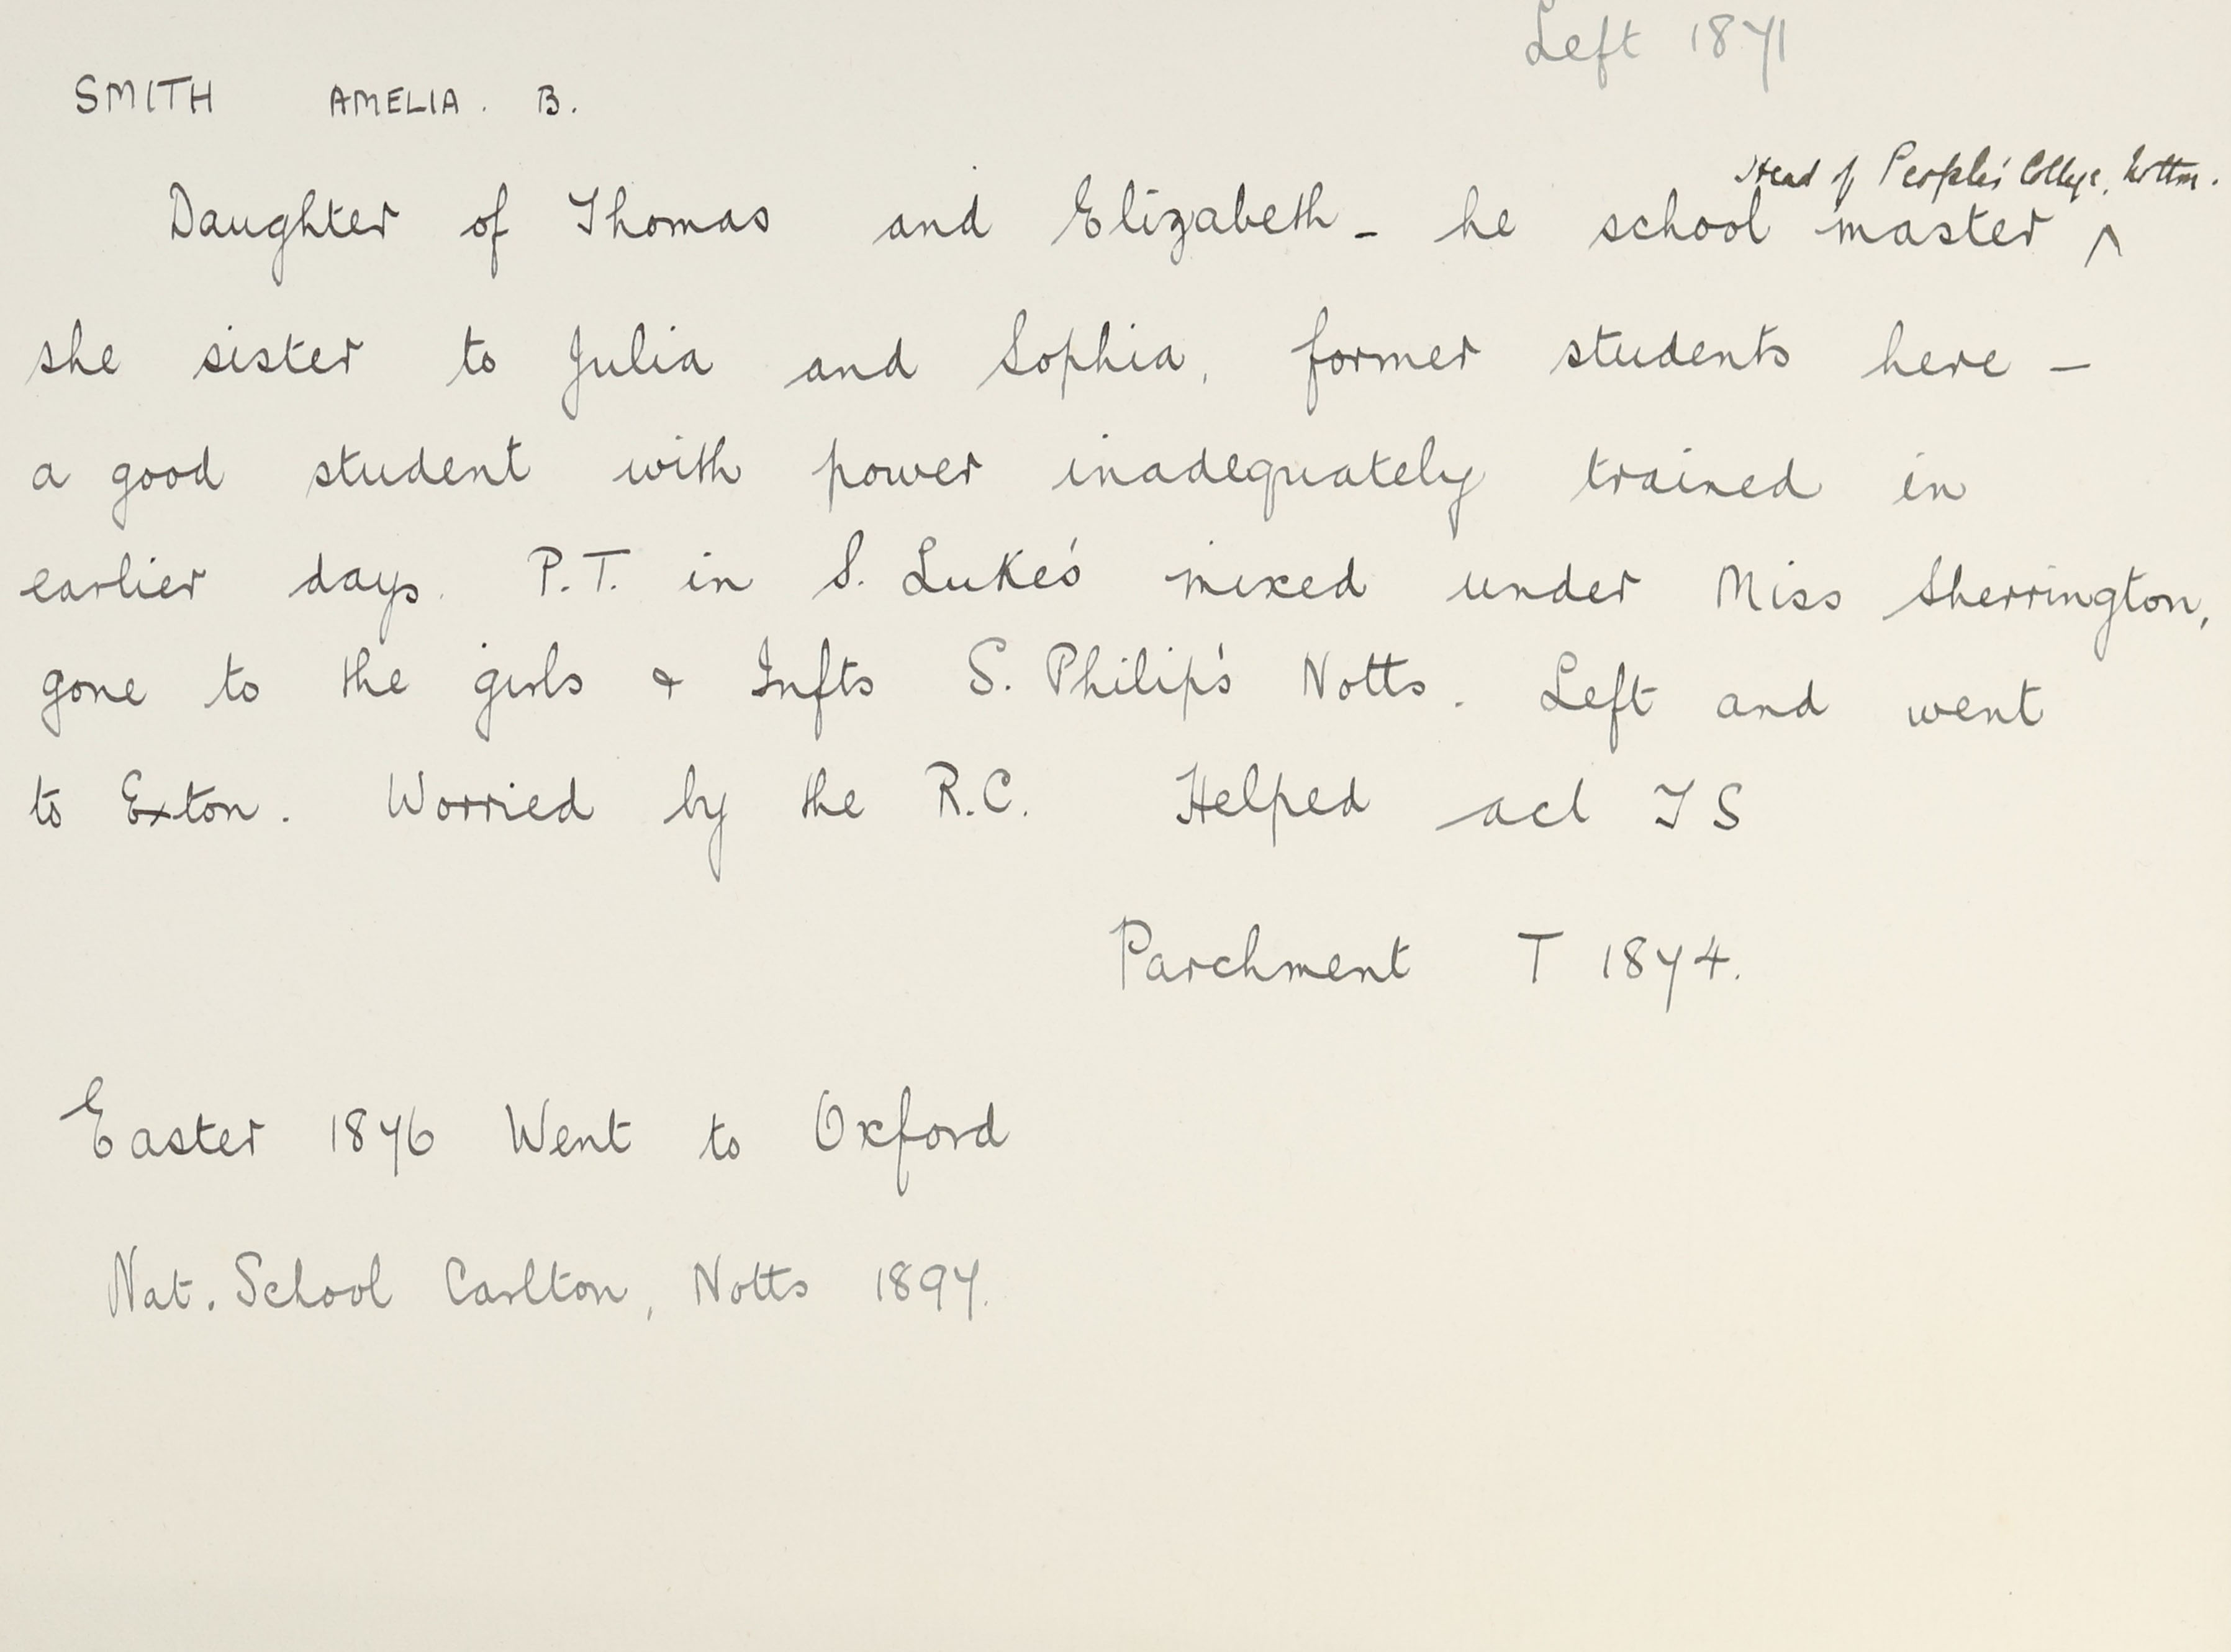 Left 1871
SMITH AMELIA. B.
Head of People's College, Nottm.
Daughter of Thomas and Elizabeth - he school master ^
she sister to Julia and Sophia, former students here -
a good student with power inadequately trained in
earlier days. P.T. in S. Luke's mixed under Miss Sherrington,
gone to the girls & Infts S. Philip's Notts. Left and went
to Exton. Worried by the R.C. Helped acl T S
Parchment T 1874.
Easter 1876 Went to Oxford
Nat. School Carlton, Notts 1897.